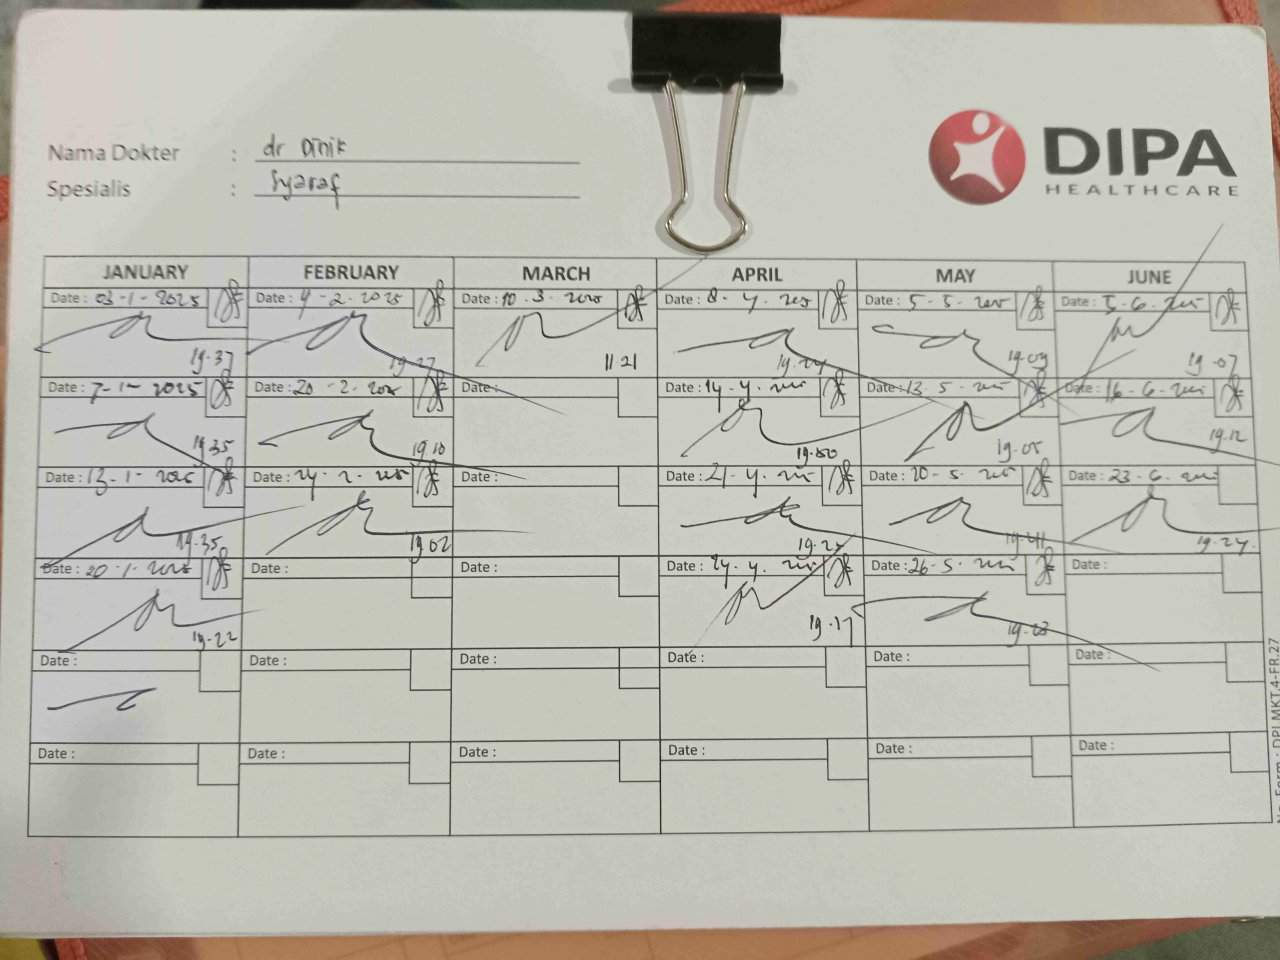 DIPA
HEALTHCARE
Nama Dokter : dr Dinik
Spesialis : Syaraf
JANUARY FEBRUARY MARCH APRIL MAY JUNE
Date : 03-1-2025 Date : 4-2-2025 Date : 10.3.2025 Date : 8.4.2025 Date : 5-5.2025 Date : 5.6.2025
19.37 19.27 11.21 19.24 19.09 19.07
Date : 7-1-2025 Date : 20-2-2025 Date : Date : 14.4.2025 Date : 13.5.2025 Date : 16-6-2025
19.35 19.10 19.00 19.05 19.12
Date : 13-1-2025 Date : 24-2-2025 Date : Date : 21-4.2025 Date : 20-5.2025 Date : 23-6.2025
19.35 19.02 19.27 19.41 19.24
Date : 20-1-2025 Date : Date : Date : 24.4.2025 Date : 26-5.2025 Date :
19.22 19.17 19.23
Date : Date : Date : Date : Date : Date :
Date : Date : Date : Date : Date : Date :
No Form : DPI.MKT.4-FR.27